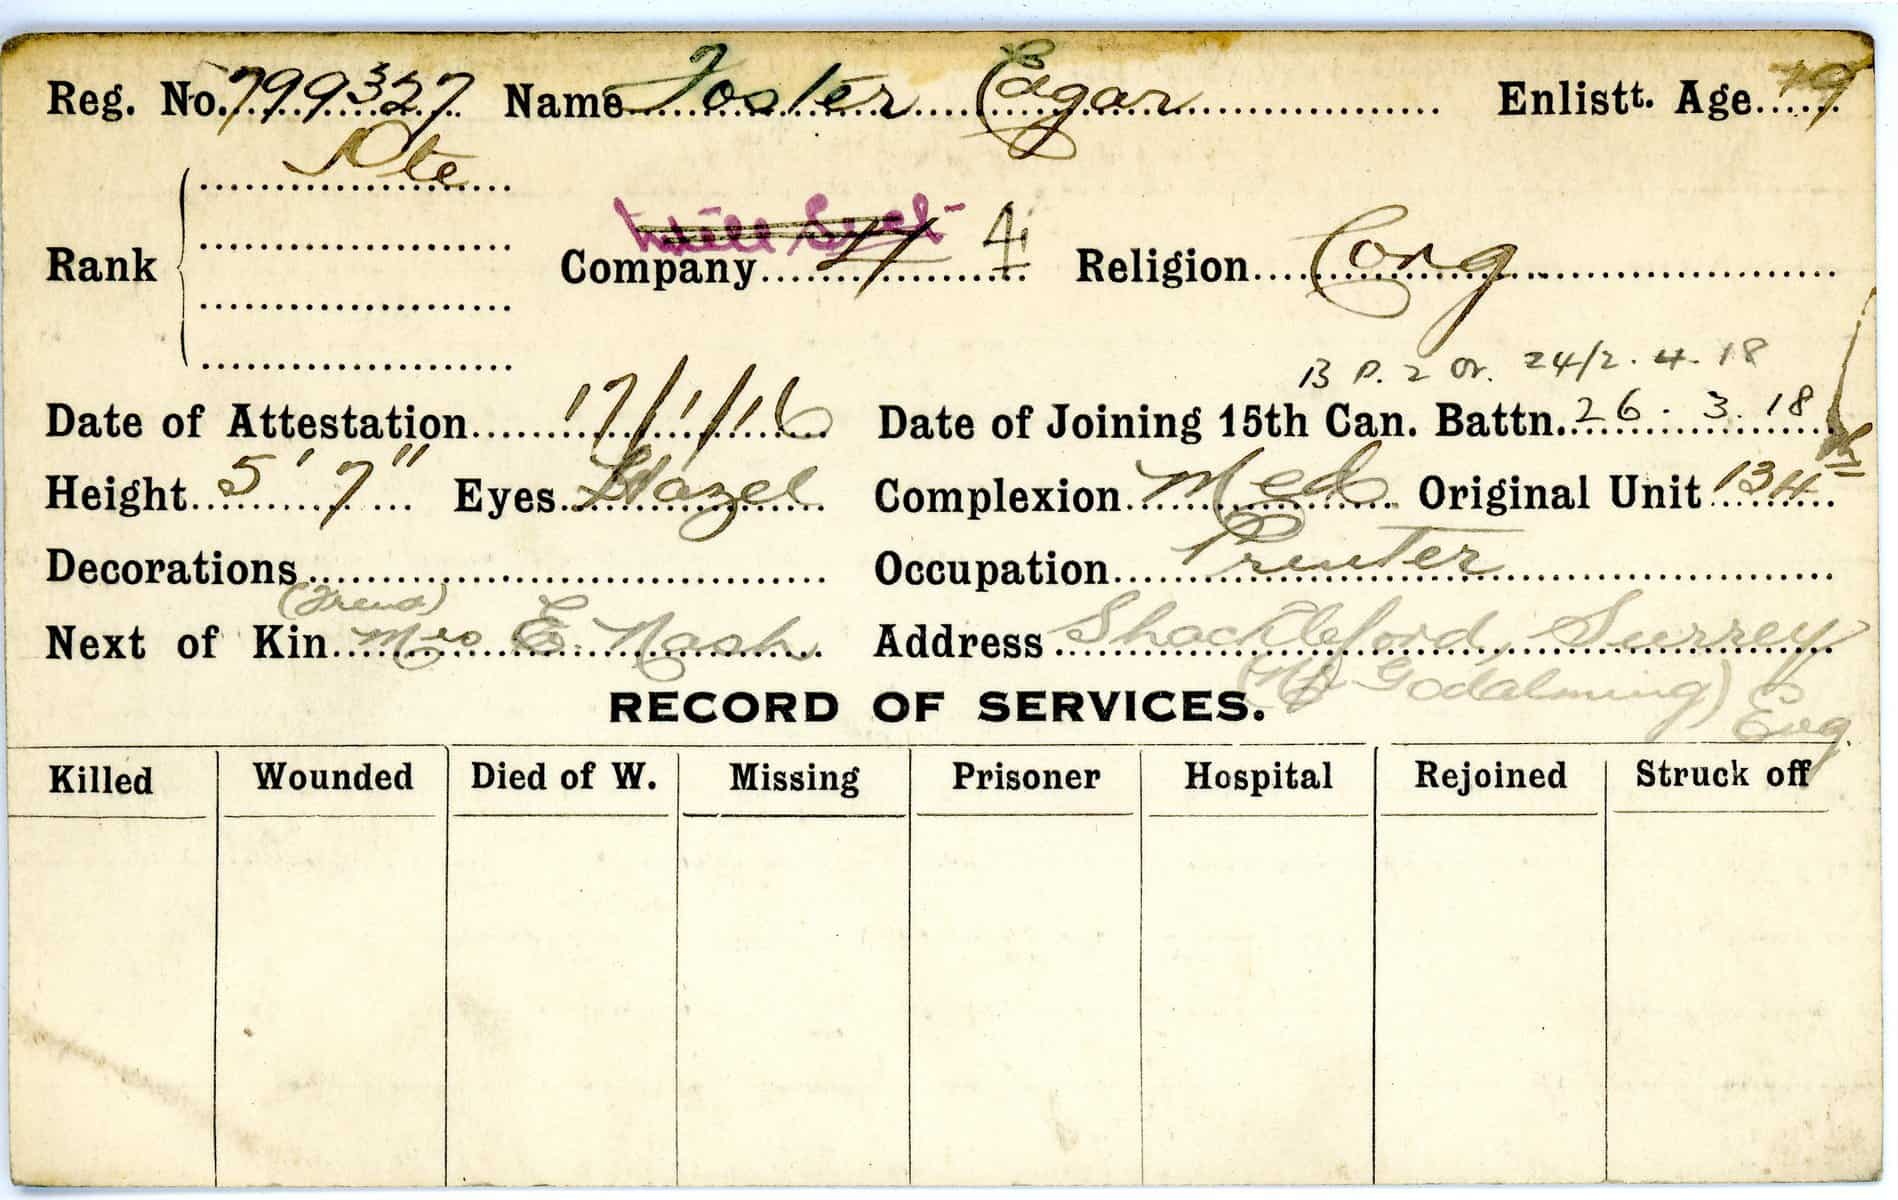 Reg. No. 799327 Name Foster Edgar Enlistt. Age 19
Pte
Rank Company 4 4 Religion Cong
B P. 2 Or. 24/2.4.18
Date of Attestation 17/1/16 Date of Joining 15th Can. Battn. 26.3.18
Height 5' 7" Eyes Hazel Complexion Med Original Unit 134th
Decorations Occupation Printer
(Friend)
Next of Kin Mrs E. Nash Address Shackleford, Surrey
(Nr Godalming) Eng.
RECORD OF SERVICES.
Killed Wounded Died of W. Missing Prisoner Hospital Rejoined Struck off